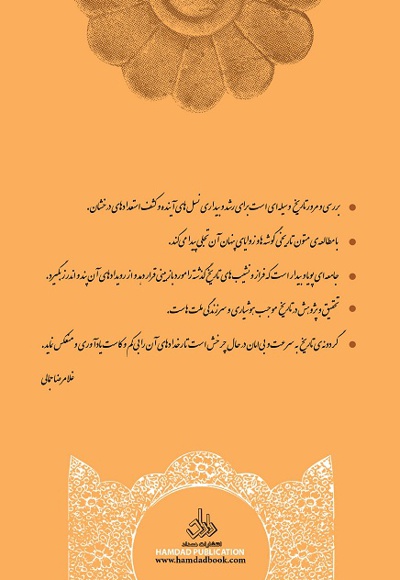 بررسی و مرور تاریخ وسیله‌ای است برای رشد و بیداری نسل‌های آینده و کشف استعدادهای درخشان.
با مطالعه‌ی متون تاریخی گوشه‌ها و زوایای پنهان آن تجلی پیدا می‌کند.
جامعه‌ای پویا و بیدار است که فراز و نشیب‌های تاریخ گذشته را مورد بازبینی قرار دهد و از رویدادهای آن پند و اندرز بگیرد.
تحقیق و پژوهش در تاریخ موجب هوشیاری و سرزندگی ملت‌هاست.
گردونه‌ی تاریخ به سرعت و بی‌امان در حال چرخش است تا رخدادهای آن را بی‌کم و کاست یادآوری و منعکس نماید.
غلامرضا جمالی
انتشارات همداد
HAMDAD PUBLICATION
www.hamdadbook.com